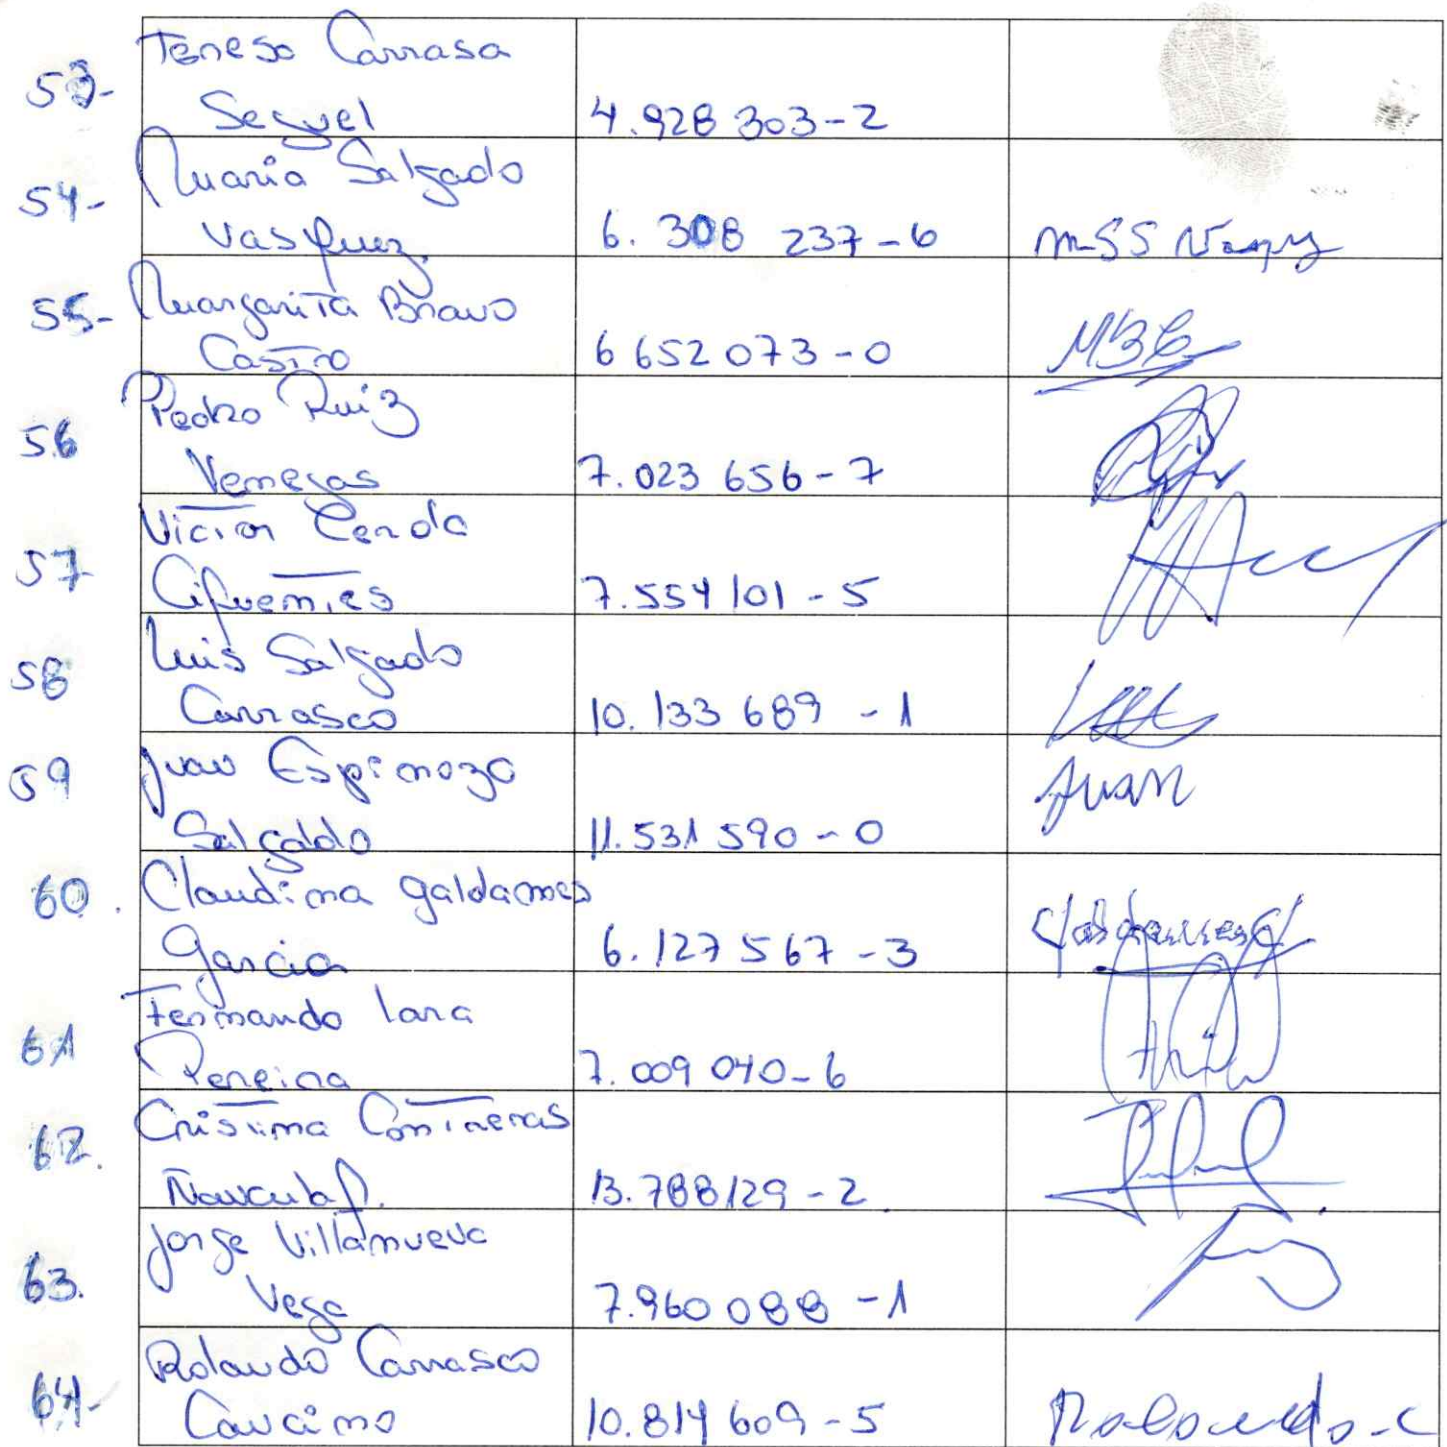 53-
Teresa Carrasa
Seguel
4.928 303-2
54-
Maria Salgado
Vasquez
6. 308 237-6
55-
Margarita Bravo
Castro
6 652 073-0
MBC
56
Pedro Ruiz
Venegas
7.023 656-7
57
Victor Cerda
Cifuentes
7.554 101-5
58
Luis Salgado
Carrasco
10. 133 689 -1
59
Juan Espinoza
Salgaldo
11.531 590-0
Juan
60.
Claudina Galdames
Garcia
6. 127 567 -3
61
Fernando Lara
Pereira
7. 009 040-6
62.
Cristina Contreras
13.788129-2
63.
Jorge Villanueva
Vega
7.960 088 -1
64-
Rolando Carrasco
Caucino
10.814 609-5
Rolando-C